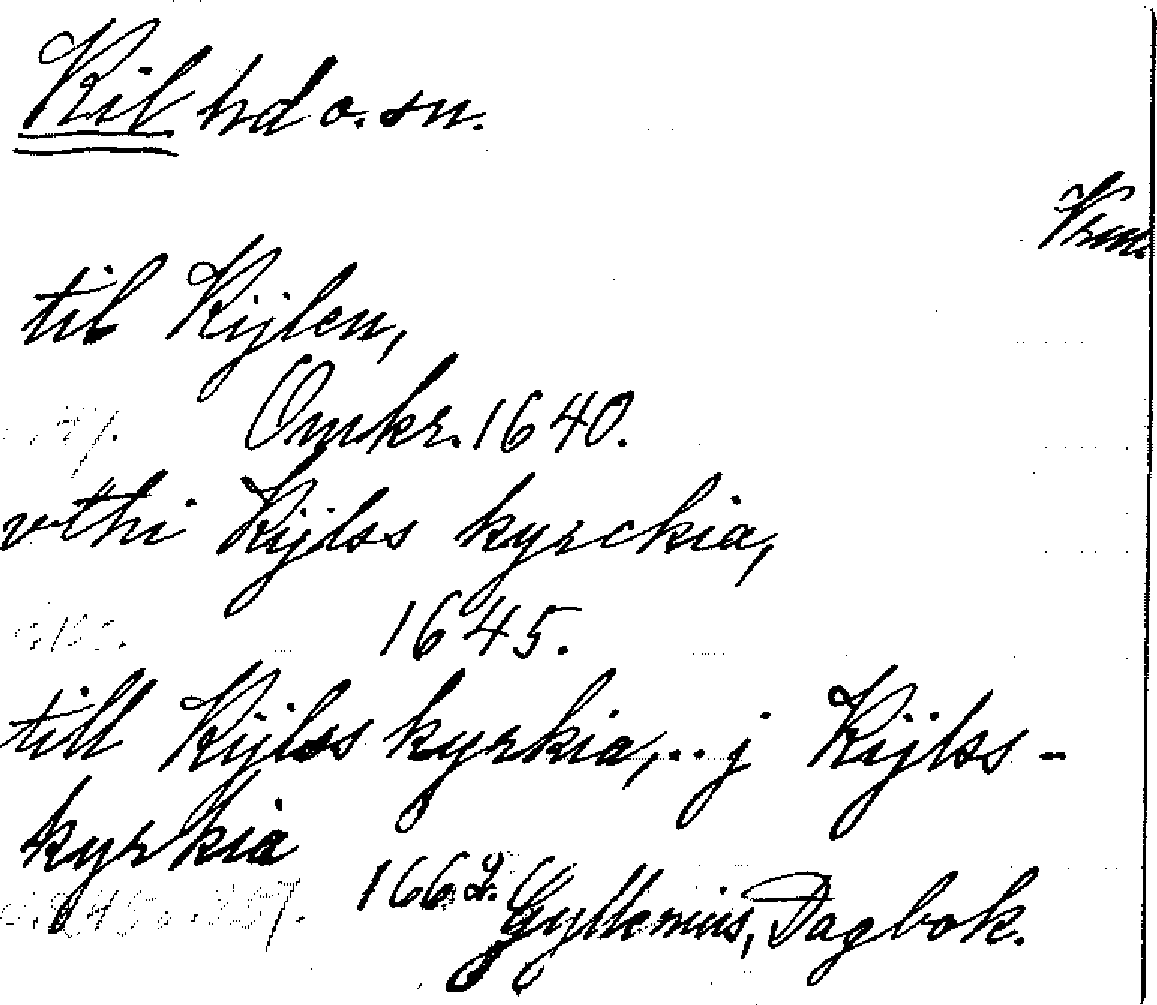 Kil hd o. sn.
Vrm.
til Kijlen,
Omkr. 1640.
vthi Kijlss kyrckia,
1645.
till Kijlss kyrkia,.. j Kijlss-
kyrkia
1662. Gyllenius, Dagbok.